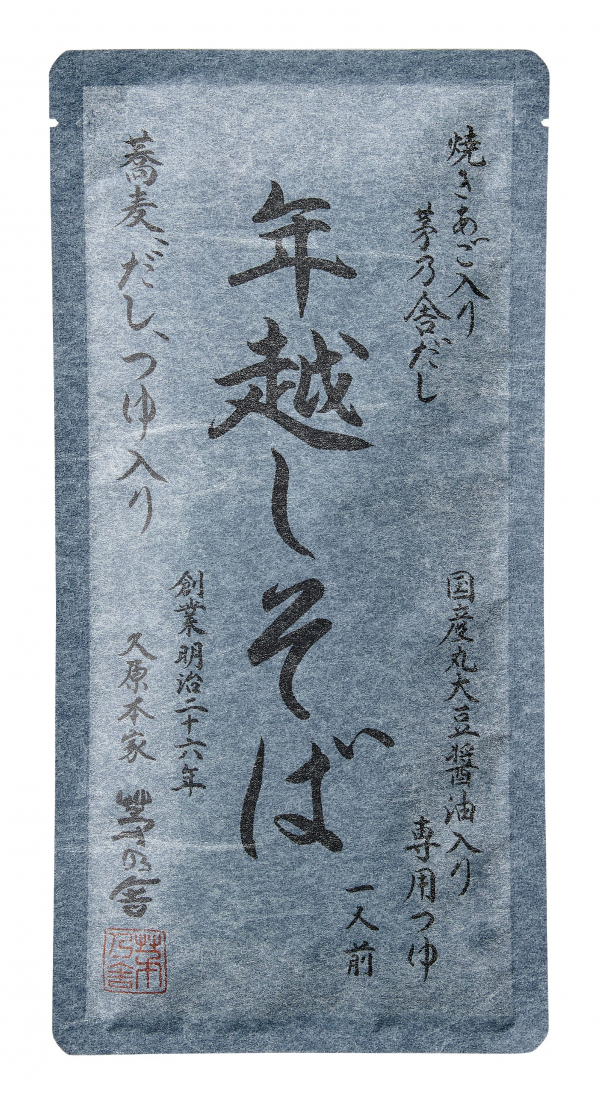 焼きあご入り
茅乃舎だし
国産丸大豆醤油入り
専用つゆ
一人前
年越しそば
創業明治二十六年
蕎麦、だし、つゆ入り
久原本家 茅乃舎
茅乃舎